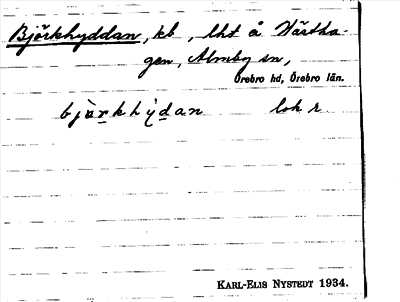 Björkhyddan, kb, lht å Västha-
gen, Almby sn,
Örebro hd, Örebro län.
bjàrkhỳdan lok r
KARL-ELIS NYSTEDT 1934.